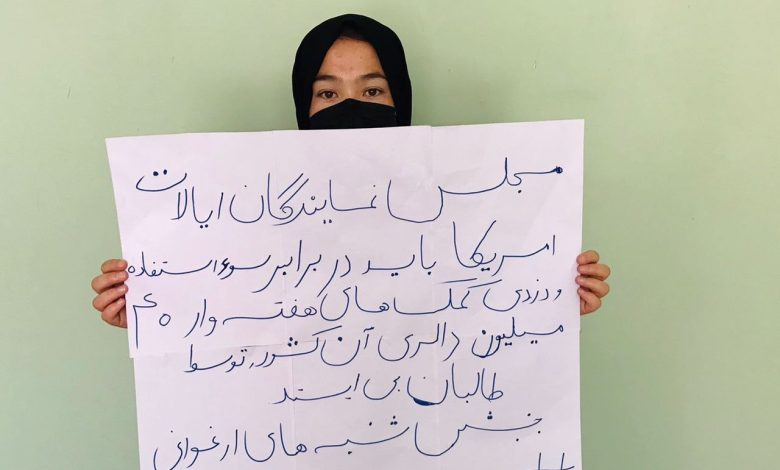 مجلس نمایندگان ایالات
امریکا باید در برابر سوء استفاده
و دزدی کمک های هفته وار ۴۰
میلیون دالری آن کشور، توسط
طالبان بی ایستد
جنبش شنبه های ارغوانی